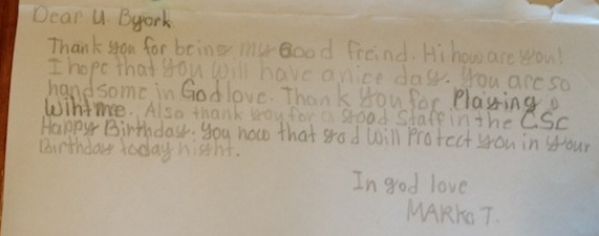 Dear U. Byork
Thank you for being my Good freind. Hi how are you!
I hope that you will have a nice day. You are so
handsome in God love. Thank you for Playing
wiht me. Also thank you for a good Staff in the CSC
Happy Birthday. You how that god will Protect you in your
Birthday today night.
In god love
MARKO T.